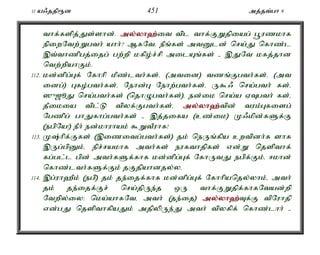 11 யஃததிரூன 451 அத்தவ்பா 9
வாக்களித்துள்ளான். அல்லாஹ்வை விட வாக்குறுதியைப் பூரணமாக
நிறைவேற்றுபவர் யார்? ஆகவே, நீங்கள் அவனுடன் செய்து கொண்ட
இவ்வாணிபத்தைப் பற்றி மகிழ்ச்சி அடையுங்கள் - இதுவே மகத்தான
வெற்றியாகும்.
112. மன்னிப்புக் கோரி மீண்டவர்கள், (அவனை) வணங்குபவர்கள், (அவ
னைப்) புகழ்பவர்கள், நோன்பு நோற்பவர்கள், ருகூஃ செய்பவர் கள்,
ஸுஜூது செய்பவர்கள் (தொழுபவர்கள்), நன்மை செய்ய ஏவுபவர் கள்,
தீமையை விட்டு விலக்குபவர்கள், அல்லாஹ்வின் வரம்புகளைப்
பேணிப் பாதுகாப்பவர்கள் - இத்தகைய (உண்மை) முஃமின்களுக்கு
(நபியே!) நீர் நன்மாராயம் கூறுவீராக!
113. முஷ்ரிக்குகள் (இணைவைப்பவர்கள்) தம் நெருங்கிய உறவினர்க ளாக
இருப்பினும், நிச்சயமாக அவர்கள் நரகவாதிகள் என்று தெளிவாக்
கப்பட்ட பின் அவர்களுக்காக மன்னிப்புக் கோருவது நபிக்கும், ஈமான்
கொண்டவர்களுக்கும் தகுதியானதல்ல.
114. இப்ராஹீம் (நபி) தம் தந்தைக்காக மன்னிப்புக் கோரியதெல்லாம், அவர்
தம் தந்தைக்குச் செய்திருந்த ஒரு வாக்குறுதிக்காகவேயன்றி
வேறில்லை. மெய்யாகவே, அவர் (தந்தை) அல்லாஹ்வுக்கு விரோதி
என்பது தெளிவாகியதும் அதிலிருந்து அவர் விலகிக் கொண்டார் -